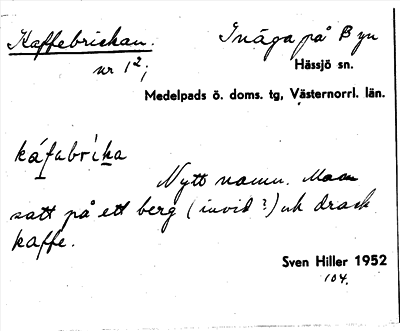 Kaffebrickan. Inäga på Byn
nr 1²; Hässjö sn.
Medelpads ö. doms. tg, Västernorrl. län.
káfabrika
Nytt namn. Man
satt på ett berg (invid?) uk drack
kaffe.
Sven Hiller 1952
104.